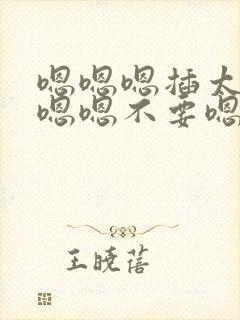 嗯嗯嗯插太
嗯嗯不要嗯
王晓蓓